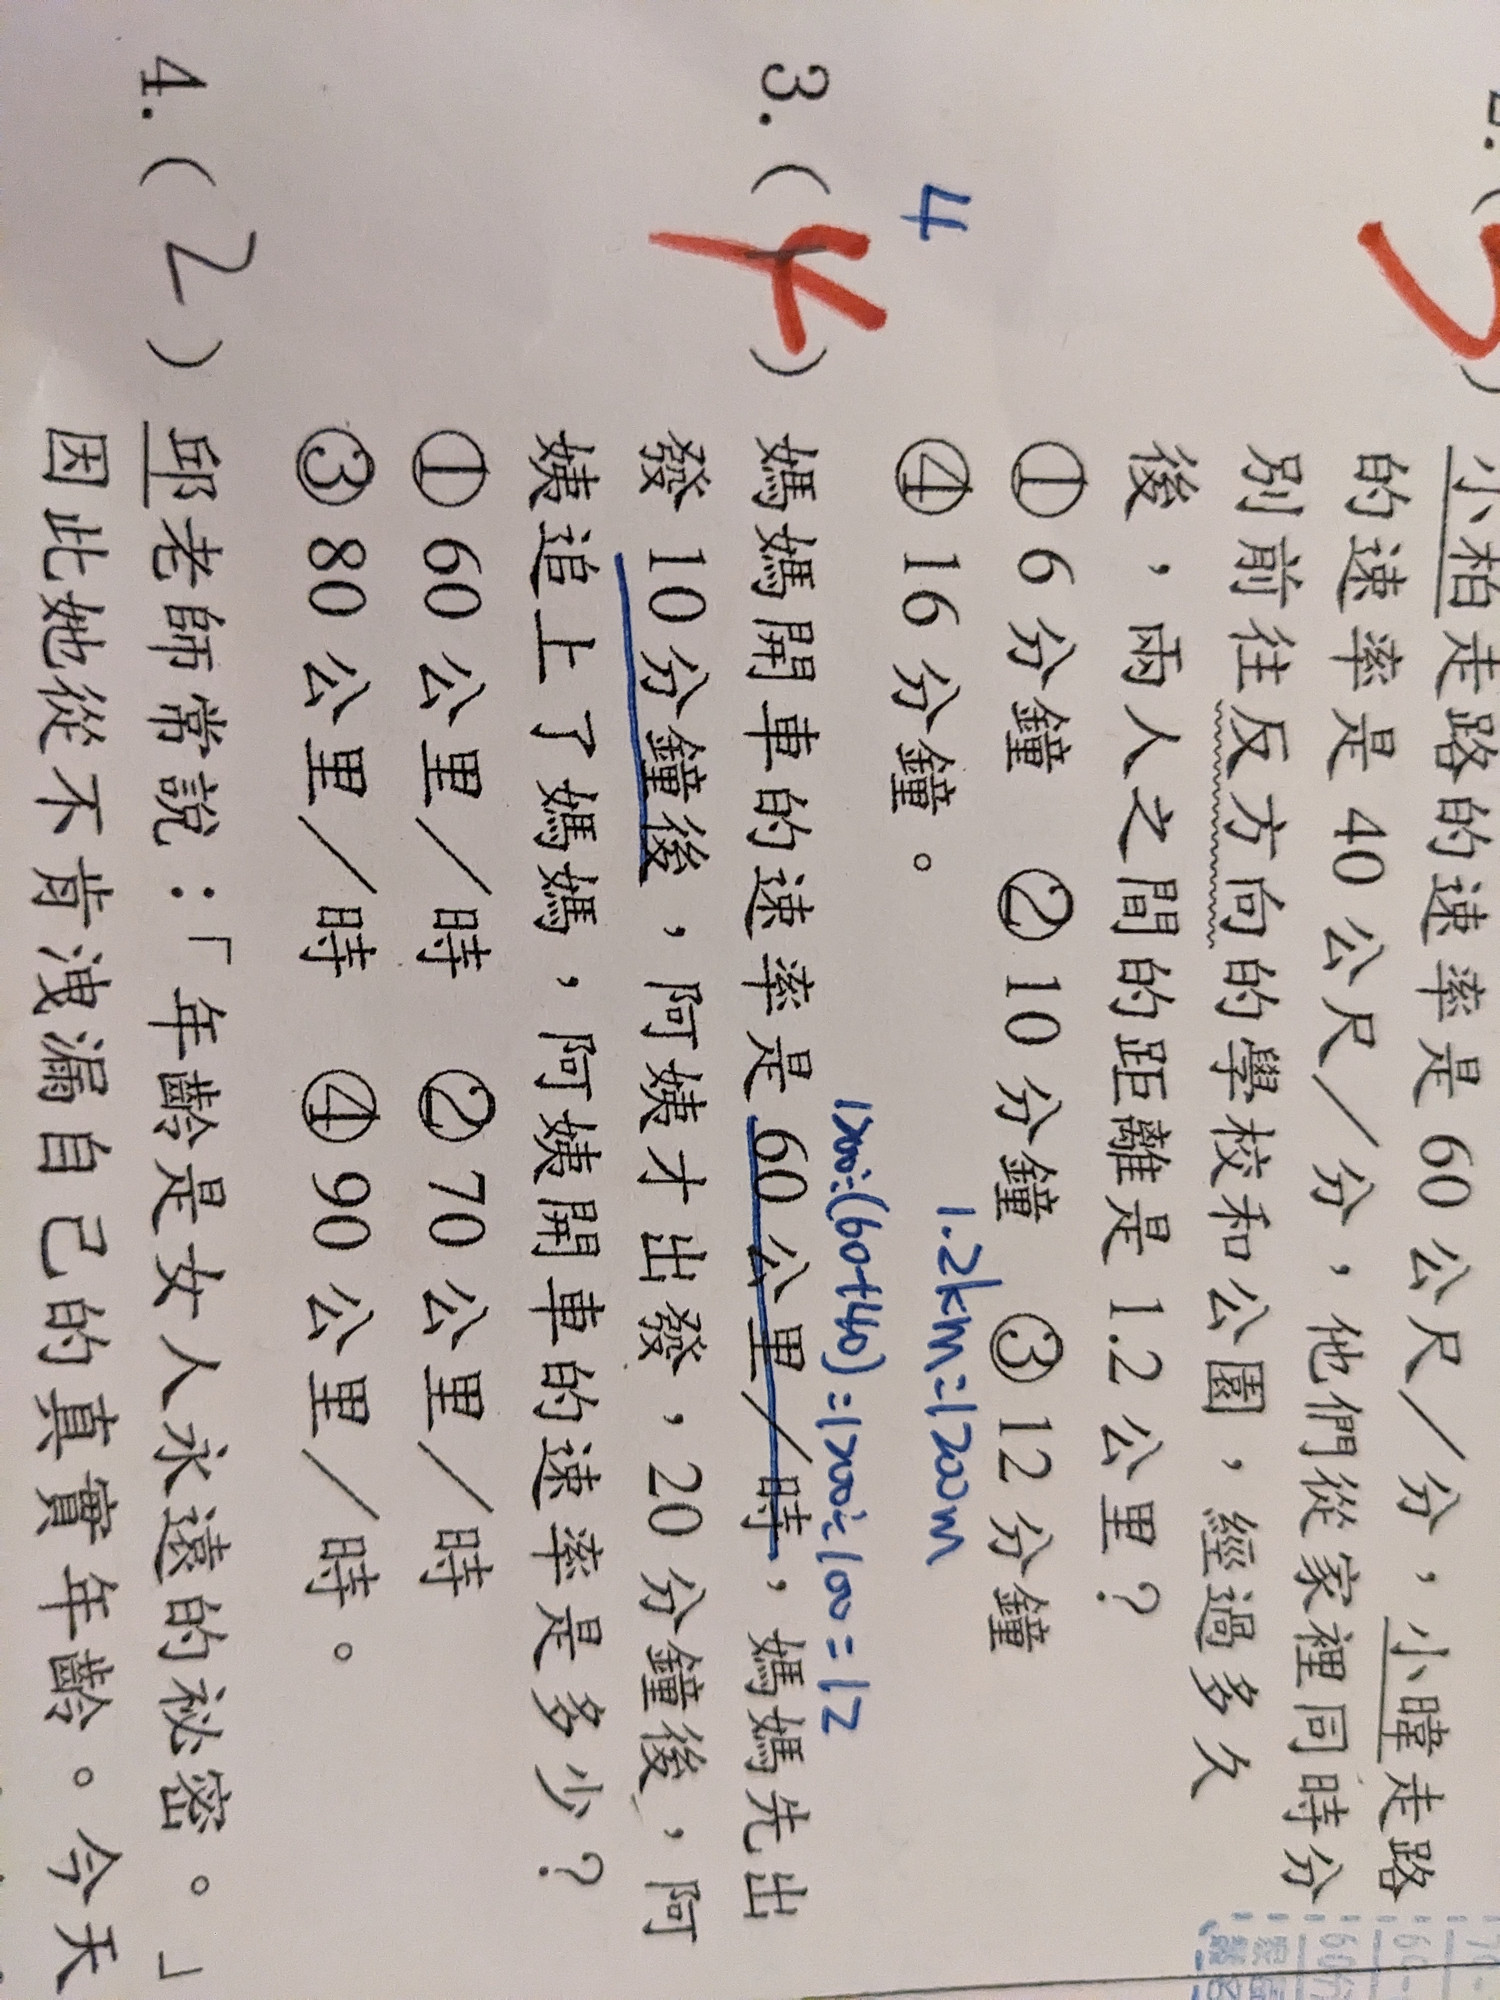 小柏走路的速率是 60 公尺／分，小暐走路
的速率是 40 公尺／分，他們從家裡同時分
別前往反方向的學校和公園，經過多久
後，兩人之間的距離是 1.2 公里？
①6 分鐘 ②10 分鐘 ③12 分鐘
④16 分鐘。
1.2km=1200m
1200÷(60+40)=1200÷100=12
4
3.( )媽媽開車的速率是 60 公里／時，媽媽先出
發 10 分鐘後，阿姨才出發，20 分鐘後，阿
姨追上了媽媽，阿姨開車的速率是多少？
①60 公里／時 ②70 公里／時
③80 公里／時 ④90 公里／時。
4.(2)邱老師常說：「年齡是女人永遠的祕密。」
因此她從不肯洩漏自己的真實年齡。今天